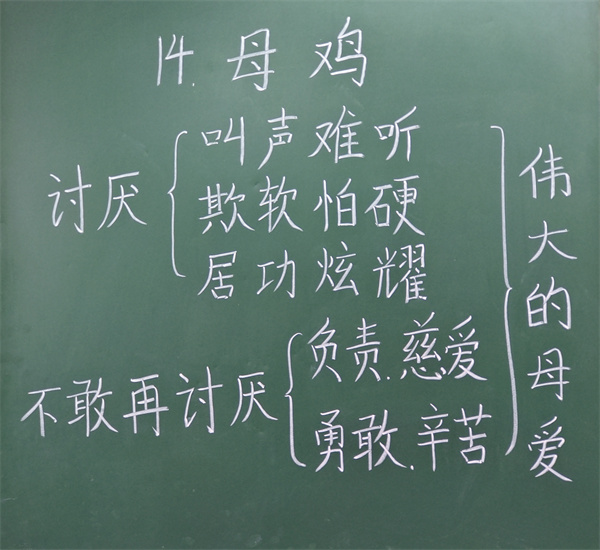 14. 母鸡
讨厌
叫声难听
欺软怕硬
居功炫耀
不敢再讨厌
负责.慈爱
勇敢.辛苦
伟大的母爱